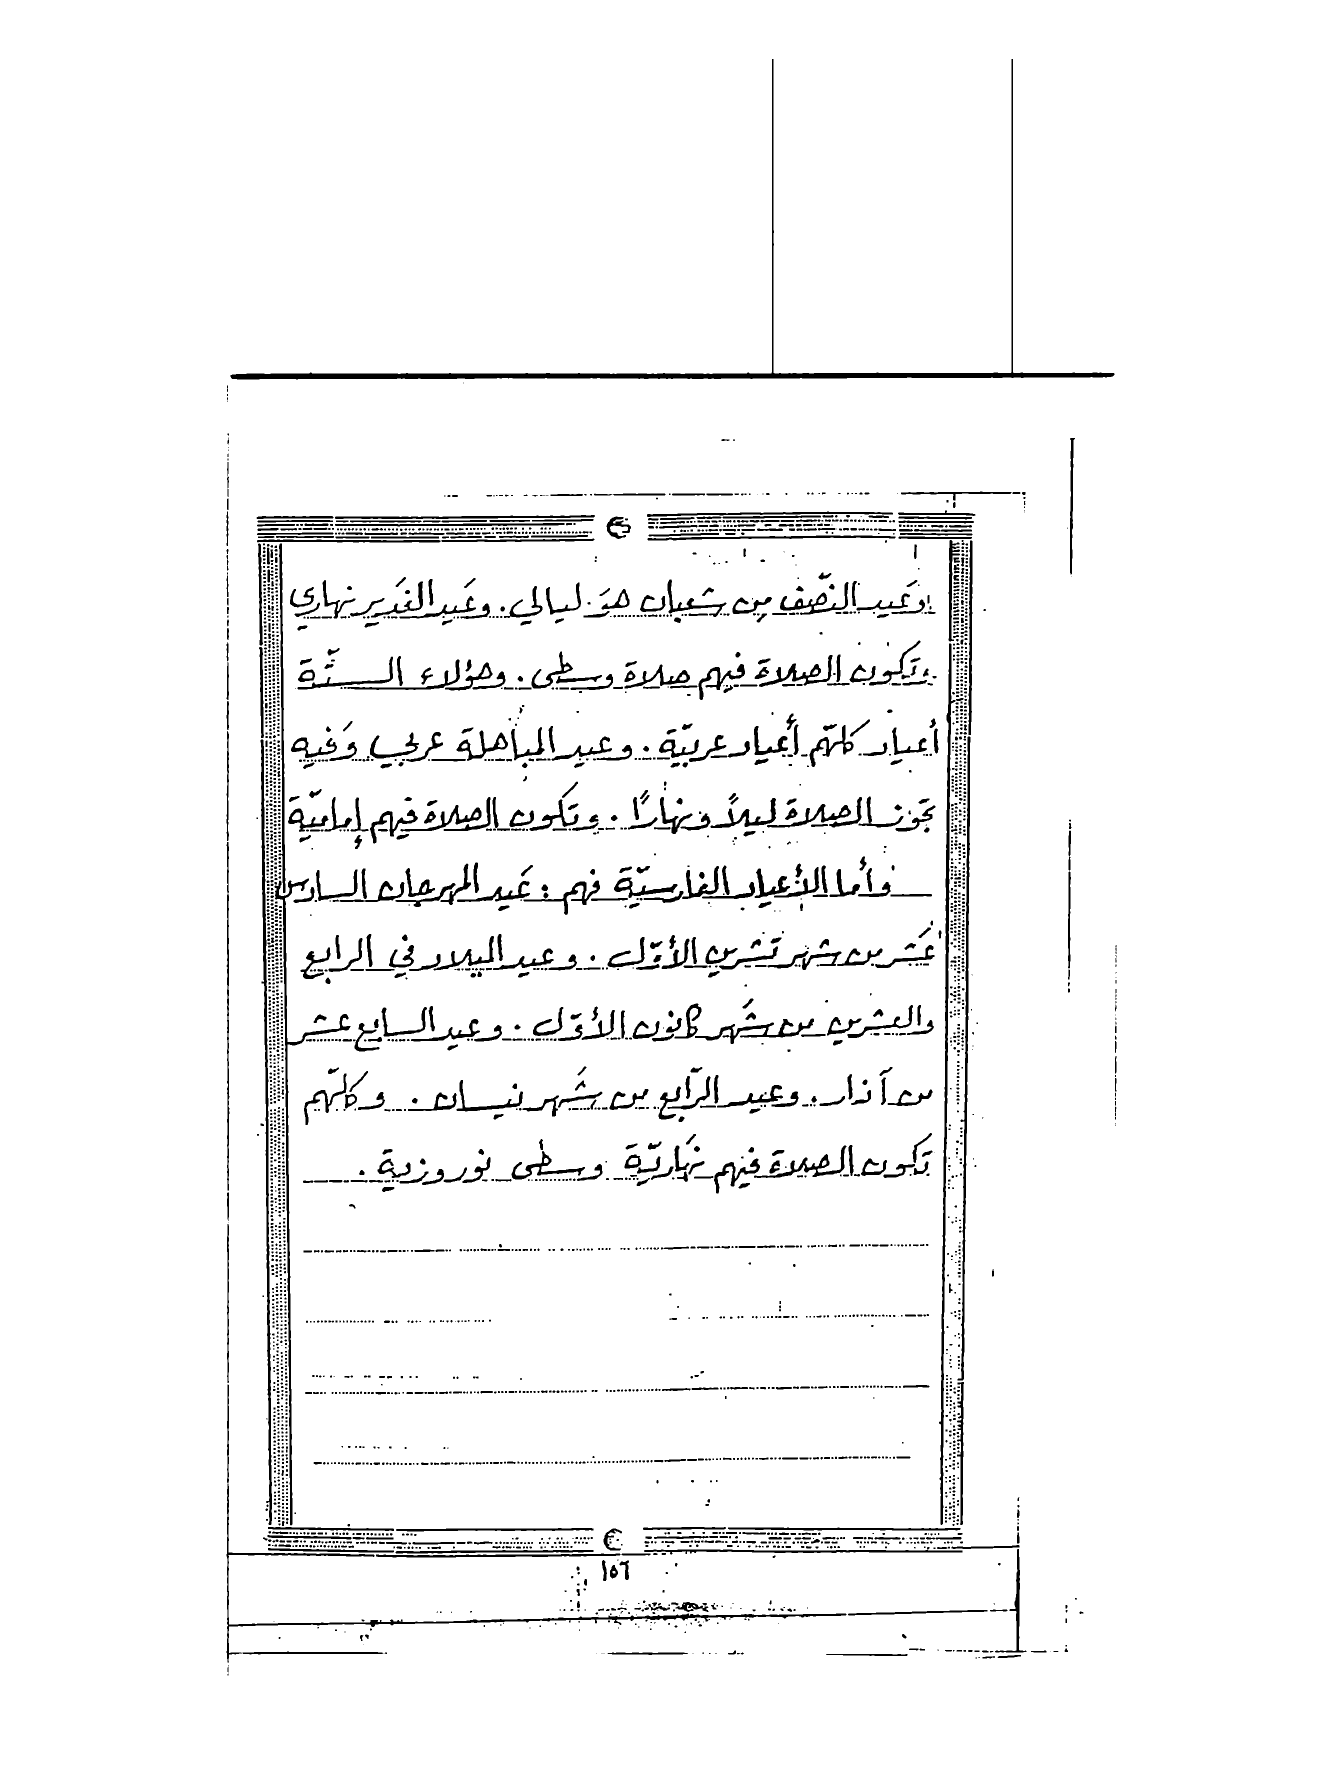 وعَيد النّصف مِن شعبان هوَ ليالي. وعَيد الغَدير نهاري
وتكون الصلاة فيهم صلاة وسطى. وهؤلاء الستّة
أعياد كلهّم أعياد عربيّة. وعيد المباهلة عربي وَفيه
تجَوز الصلاة ليلاً ونهارًا. وتكون الصلاة فيهم إماميّة
وأما الأعياد الفارسيّة فهم: عَيد المهرجان السادس
عَشر من شهر تشرين الأوّل. وعيد الميلاد في الرابع
والعشرين من شَهر كانون الأوّل. وعيد السابع عشر
من آذار. وعيد الرّابع من شَهر نيسان. وكلهّم
تكون الصلاة فيهم نهَاريّة وسطى نوروزية.
١٥٦